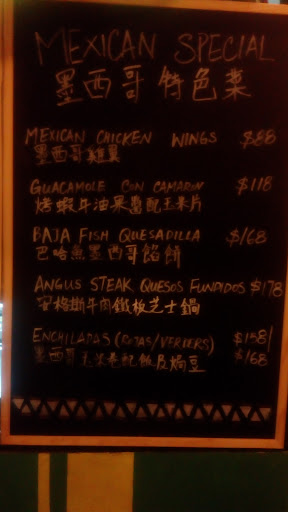 MEXICAN SPECIAL
墨西哥 特色菜
MEXICAN CHICKEN WINGS $88
墨西哥雞翼
GUACAMOLE CON CAMARON $118
烤蝦牛油果醬配玉米片
BAJA FISH QUESADILLA $168
巴哈魚墨西哥餡餅
ANGUS STEAK QUESOS FUNDIDOS $178
安格斯牛肉鐵板芝士鍋
ENCHILADAS (ROJAS/VERDERS) $158/
墨西哥玉米卷配飯及焗豆 $168